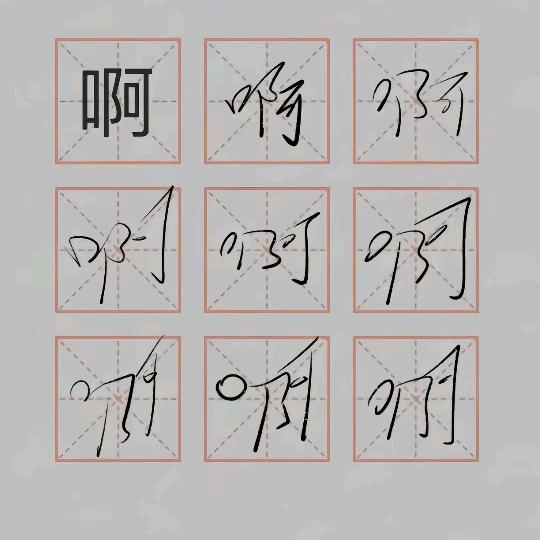 啊 啊 啊
啊 啊 啊
啊 啊 啊